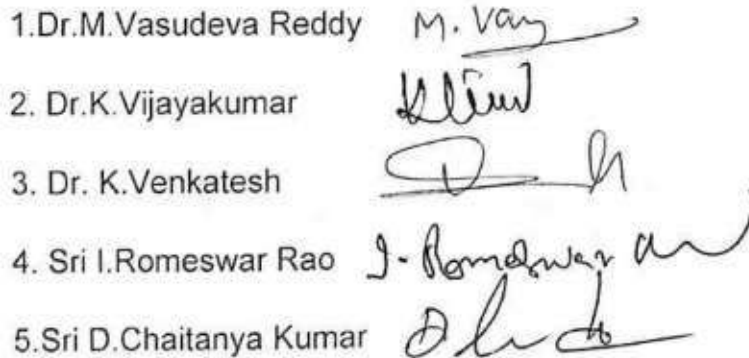 1.Dr.M.Vasudeva Reddy M. Vas
2. Dr.K.Vijayakumar
3. Dr. K.Venkatesh
4. Sri I.Romeswar Rao I. Romeswar
5.Sri D.Chaitanya Kumar